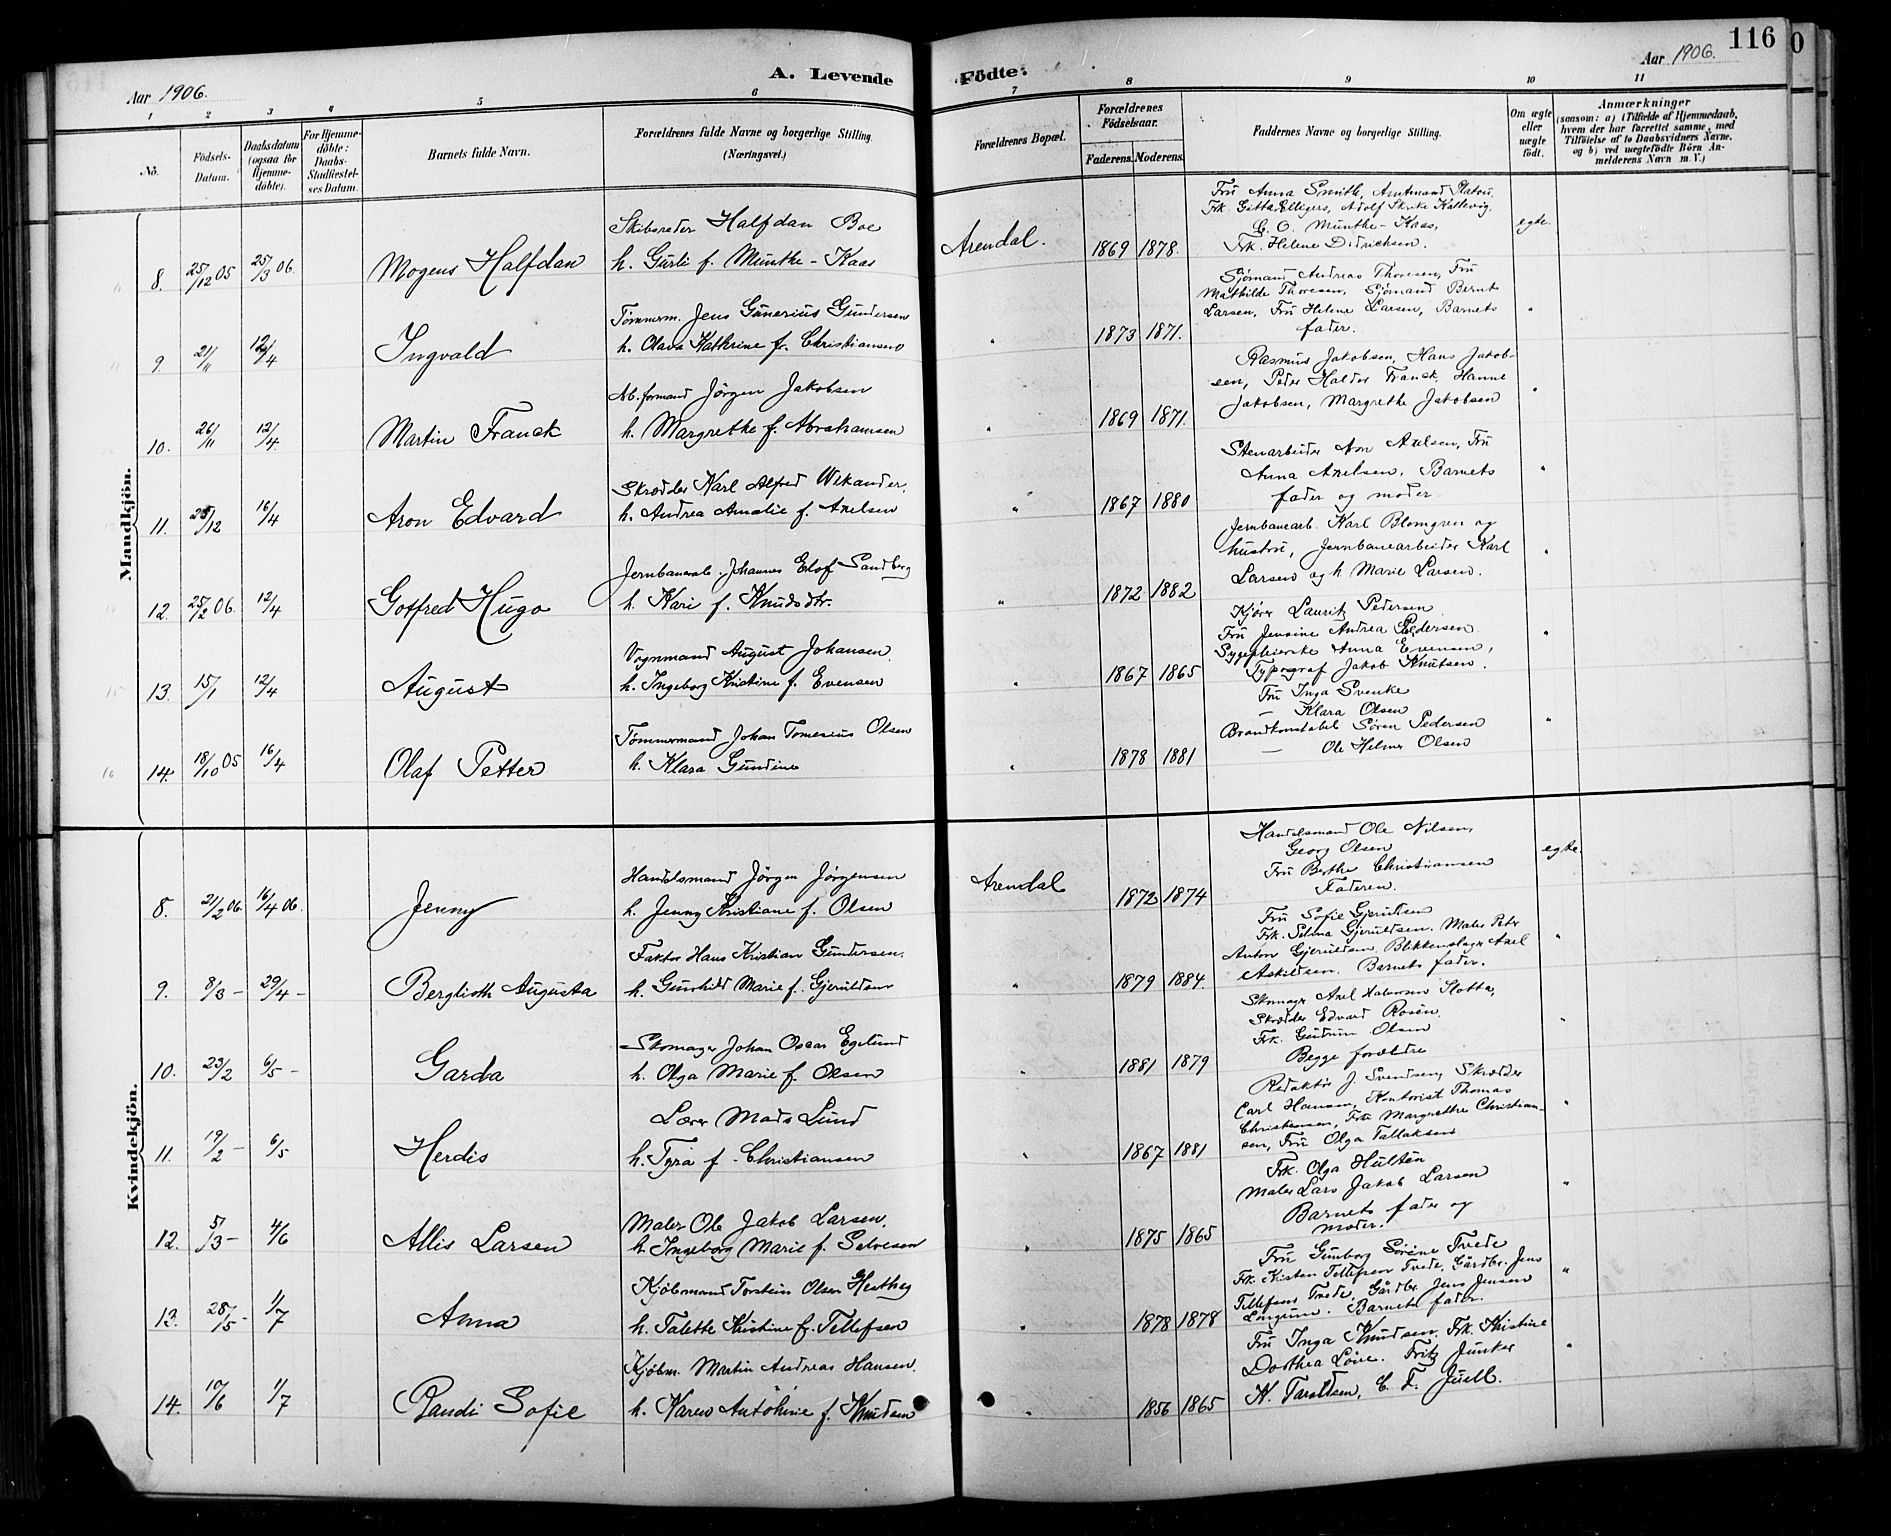 116
0
Aar 1906.
A. Levende Födte:
Aar 1906.
1
2
3
4
5
6
7
8
9
10
11
No.
Födsels-
Datum.
Daabsdatum
(ogsaa for
Hjemme-
döbte).
For Hjemme-
döbte:
Daabs-
Stadfæstel-
ses Datum.
Barnets fulde Navn.
Forældrenes fulde Navne og borgerlige Stilling.
(Næringsvei.)
Forældrenes Bopæl.
Forældrenes
Födselsaar.
Faderens. Moderens.
Faddernes Navne og borgerlige Stilling.
Om ægte
eller
uægte
födt.
Anmærkninger
(saasom: a) i Tilfælde af Hjemmedaab,
hvem der har forrettet samme, med
Tilföielse af to Daabsvidners Navne.
og b) ved uægtefödte Börn An-
melderens Navn m. V.)
Mandkjön.
8. 25/12 05 25/3 06. Mogens Halfdan
Skibsreder Halfdan Boe
h. Gurli f. Munthe-Kaas
Arendal. 1869 1878.
Fru Anna Smith, Amtmand Platou,
Frk. Gitta Elligers, Adolf Skute Kallevig,
C. O. Munthe-Kaas,
Frk. Helene Didrichsen.
egte.
9. 21/11 12/4 Ingvald
Tømmerm. Jens Gunerius Gundersen
h. Olava Kathrine f. Christiansen
" 1873 1871.
Sjømand Andreas Thoresen, Fru
Mathilde Thoresen, Sjømand Bernt
Larsen, Fru Helene Larsen, Barnets
fader.
"
10. 26/11 12/4 Martin Franck
Ab.formand Jörgen Jakobsen
h. Margrethe f. Abrahamsen
" 1869 1871.
Rasmus Jakobsen, Hans Jakob-
sen, Peder Halder Franck, Hanne
Jakobsen, Margrethe Jakobsen
"
11. 25/12 16/4 Aron Edvard
Skrædder Karl Alfred Wikander.
h. Andrea Amalie f. Axelsen
" 1867 1880
Stenarbeider Aron Axelsen, Fru
Anna Axelsen, Barnets
fader og moder.
"
12. 25/2 06. 12/4 Gotfred Hugo
Jernbanearb. Johannes Elof Sandberg
h. Kari f. Knudsdtr.
" 1872 1882
Jernbanearb. Karl Blomgren og
hustru, Jernbanearbeider Karl
Larsen og h Marie Larsen.
"
13. 15/1 12/4 August
Vognmand August Johansen
h. Ingeborg Kristine f. Evensen
" 1867 1865
Kjører Lauritz Pedersen
Fru Jensine Andrea Pedersen
Sygepleierske Anna Evensen,
Typograf Jakob Knutsen.
"
14. 18/10 05 16/4 Olaf Petter
Tømmermand Johan Tomesius Olsen
h. Klara Gundine
" 1878 1881
Fru Inga Svenke
— Klara Olsen
Brandkonstabel Søren Pedersen
— Ole Helmer Olsen
"
Kvindekjön.
8. 21/2 06. 16/4 06. Jenny
Handelsmand Jörgen Jörgensen
h. Jenny Kristiane f. Olsen
Arendal 1872 1874
Handelsmand Ole Nilsen,
Georg Olsen
Fru Berthe Christiansen
Faderen.
egte.
9. 8/3 – 29/4 – Berglioth Augusta
Faktor Hans Kristian Gundersen.
h. Gunhild Marie f. Gjeruldsen
" 1879 1884.
Fru Sofie Gjeruldsen
Frk. Selma Gjeruldsen. Maler Peter
Anton Gjeruldsen, Blikkenslager Axel
Askildsen. Barnets fader.
"
10. 23/2 6/5 – Garda
Skomager Johan Oscar Egelund
h. Olga Marie f. Olsen
" 1881 1879
Skomager Axel Halvorsen Slotta,
Skrædder Edvard Rosén.
Frk. Gudrun Olsen
Begge forældre
"
11. 19/2 – 6/5 Herdis
Lærer Mads Lund
h. Tyra f. Christiansen
" 1867 1881
Redaktør J. Svendsen, Skrædder
Carl Hansen, Kontorist Thomas
Christensen, Frk. Margrethe Christian-
sen, Fru Olga Tallaksen
"
12. 5/3 – 4/6 Allis Larsen
Maler Ole Jakob Larsen.
h. Ingeborg Marie f. Salvesen
" 1875 1865
Frk. Olga Hultén
Maler Lars Jakob Larsen
Barnets fader og
moder.
"
13. 28/5 – 1/7 Anna
Kjöbmand Torstein Olsen
h. Talette Kristine f. Tellefsen
" 1878 1878
Fru Gunborg Sørine Tvede
Frk. Kirsten Tellefsen Tvede, Gårdbr. Jens
Tellefsen Tvede, Gårdbr. Jens Jensen
Longum. Barnets fader.
"
14. 10/6 1/7 Randi Sofie
Kjöbm. Martin Andreas Hansen.
h. Karen Antokine f. Knudsen
" 1856 1865
Fru Inga Knudsen, Frk. Kristine
Dorthea Løve. Fritz Junker
K. Taraldsen, C. F. Juell.
"